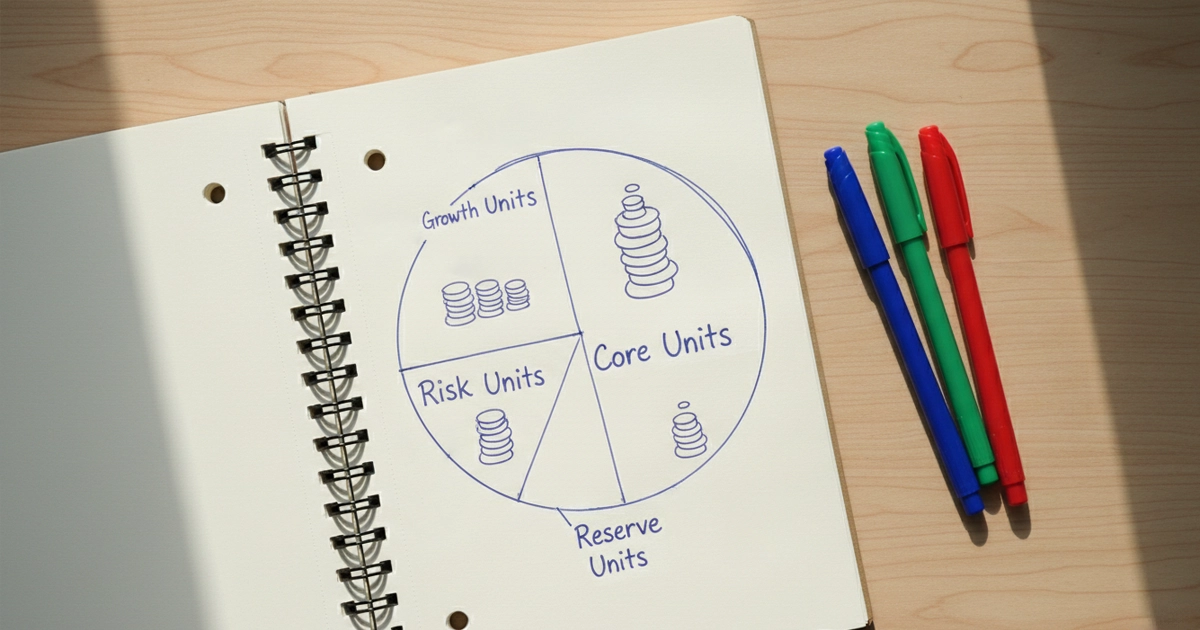 Growth Units
Core Units
Risk Units
Reserve
Units